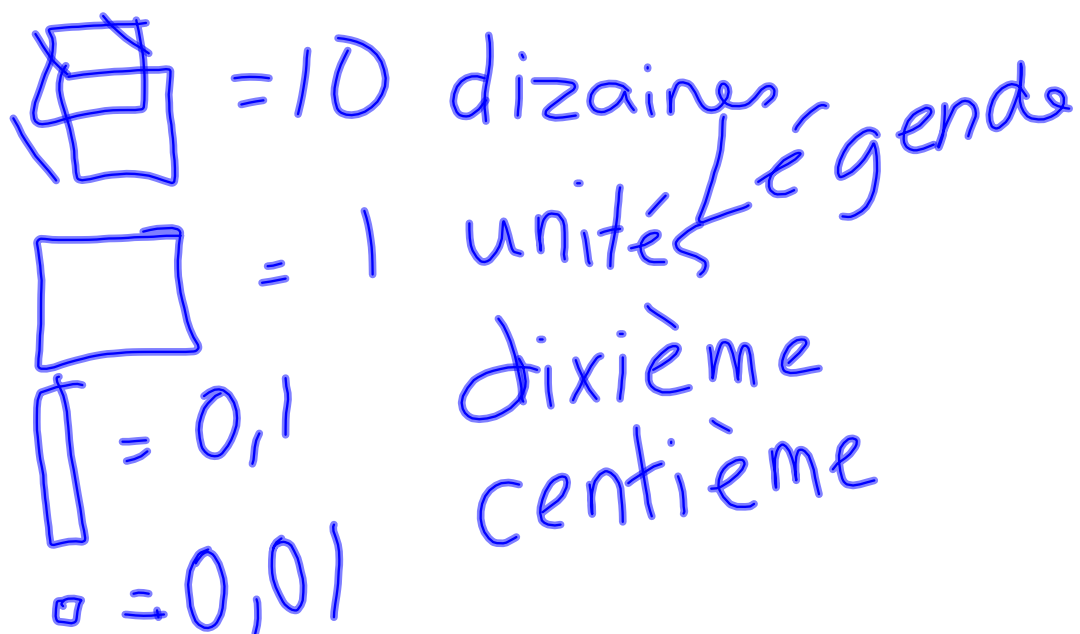 =10 dizaines
Légende
= 1 unités
= 0,1 dixième
= 0,01 centième